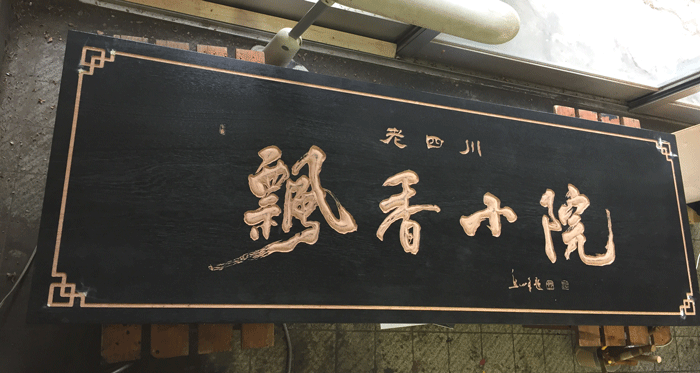 老四川
飘香小院